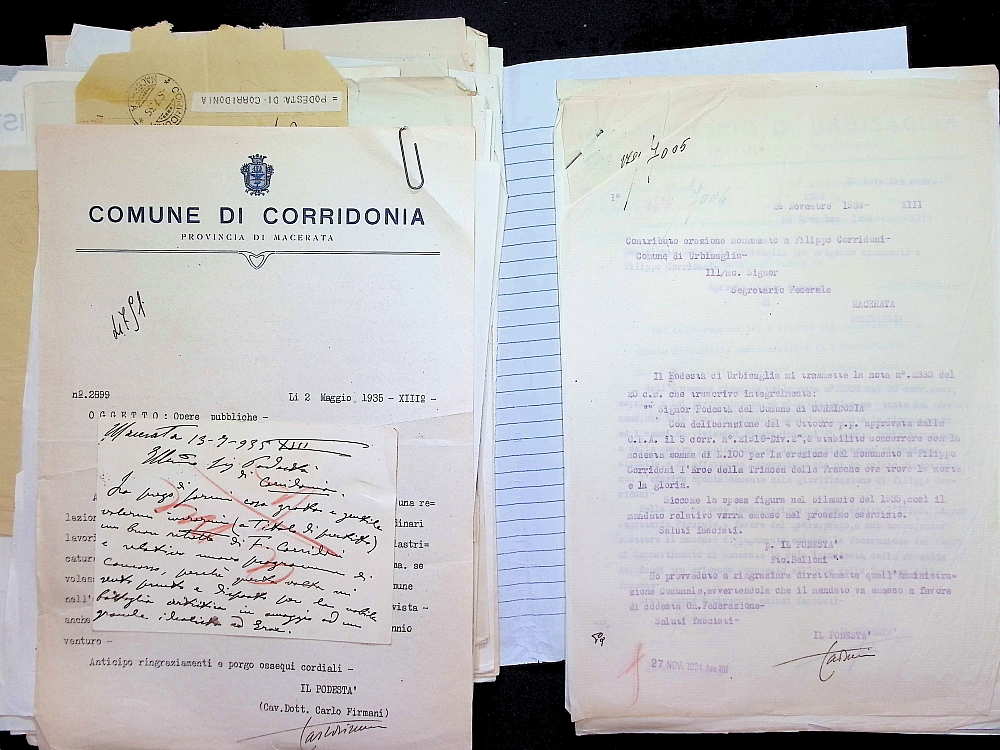 CORRIDONIA
= PODESTA' DI CORRIDONIA
COMUNE DI CORRIDONIA
PROVINCIA DI MACERATA
nº.2899
Li 2 Maggio 1935 - XIIIº -
OGGETTO: Opere pubbliche -
Macerata 13-7-935 XIII
di Corridonia.
La prego di farmi cosa grata e gentile
volermi (a titolo di prestito)
un buon ritratto di F. Corridoni
e relativo nuovo programma di
concorso, perchè questa volta mi
sento pronto e disposto per la nobile
battaglia artistica in omaggio ad un
grande idealista ed Eroe.
una re=
lazion
dinari
lavori
lastri=
cature
ma. se
voless
mune
nell'
vista -
anche
nnio
venturo -
Anticipo ringraziamenti e porgo ossequi cordiali -
IL PODESTA'
(Cav.Dott. Carlo Firmani)
7005
Iº
Novembre 1934- XIII
Contributo erezione monumento a Filippo Corridoni-
Comune di Urbisaglia-
Ill/mo. Signor
Segretario Federale
MACERATA
Il Podestà di Urbisaglia mi trasmette la nota nº.2333 del
20 c.m. che trascrivo integralmente:
"" Signor Podestà del Comune di CORRIDONIA
Con deliberazione del 4 Ottobre p.p. approvata dalla
G.P.A. il 5 corr. nº.21918-Div.2^,è stabilito concorrere con la
modesta somma di L.100 per la erezione del monumento a Filippo
Corridoni l'Eroe della Trincea delle Frasche ove trovò la morte
e la gloria.
Siccome la spesa figura nel bilancio del 1935,così il
mandato relativo verrà emesso nel prossimo esercizio.
Saluti fascisti.
p. IL PODESTA'
Fto.Belloni ""
Ho provveduto a ringraziare direttamente quell'Amministra=
zione Comunale,avvertendola che il mandato va emesso a favore
di codesta On.Federazione-
Saluti fascisti-
IL PODESTA'
27 NOV. 1934